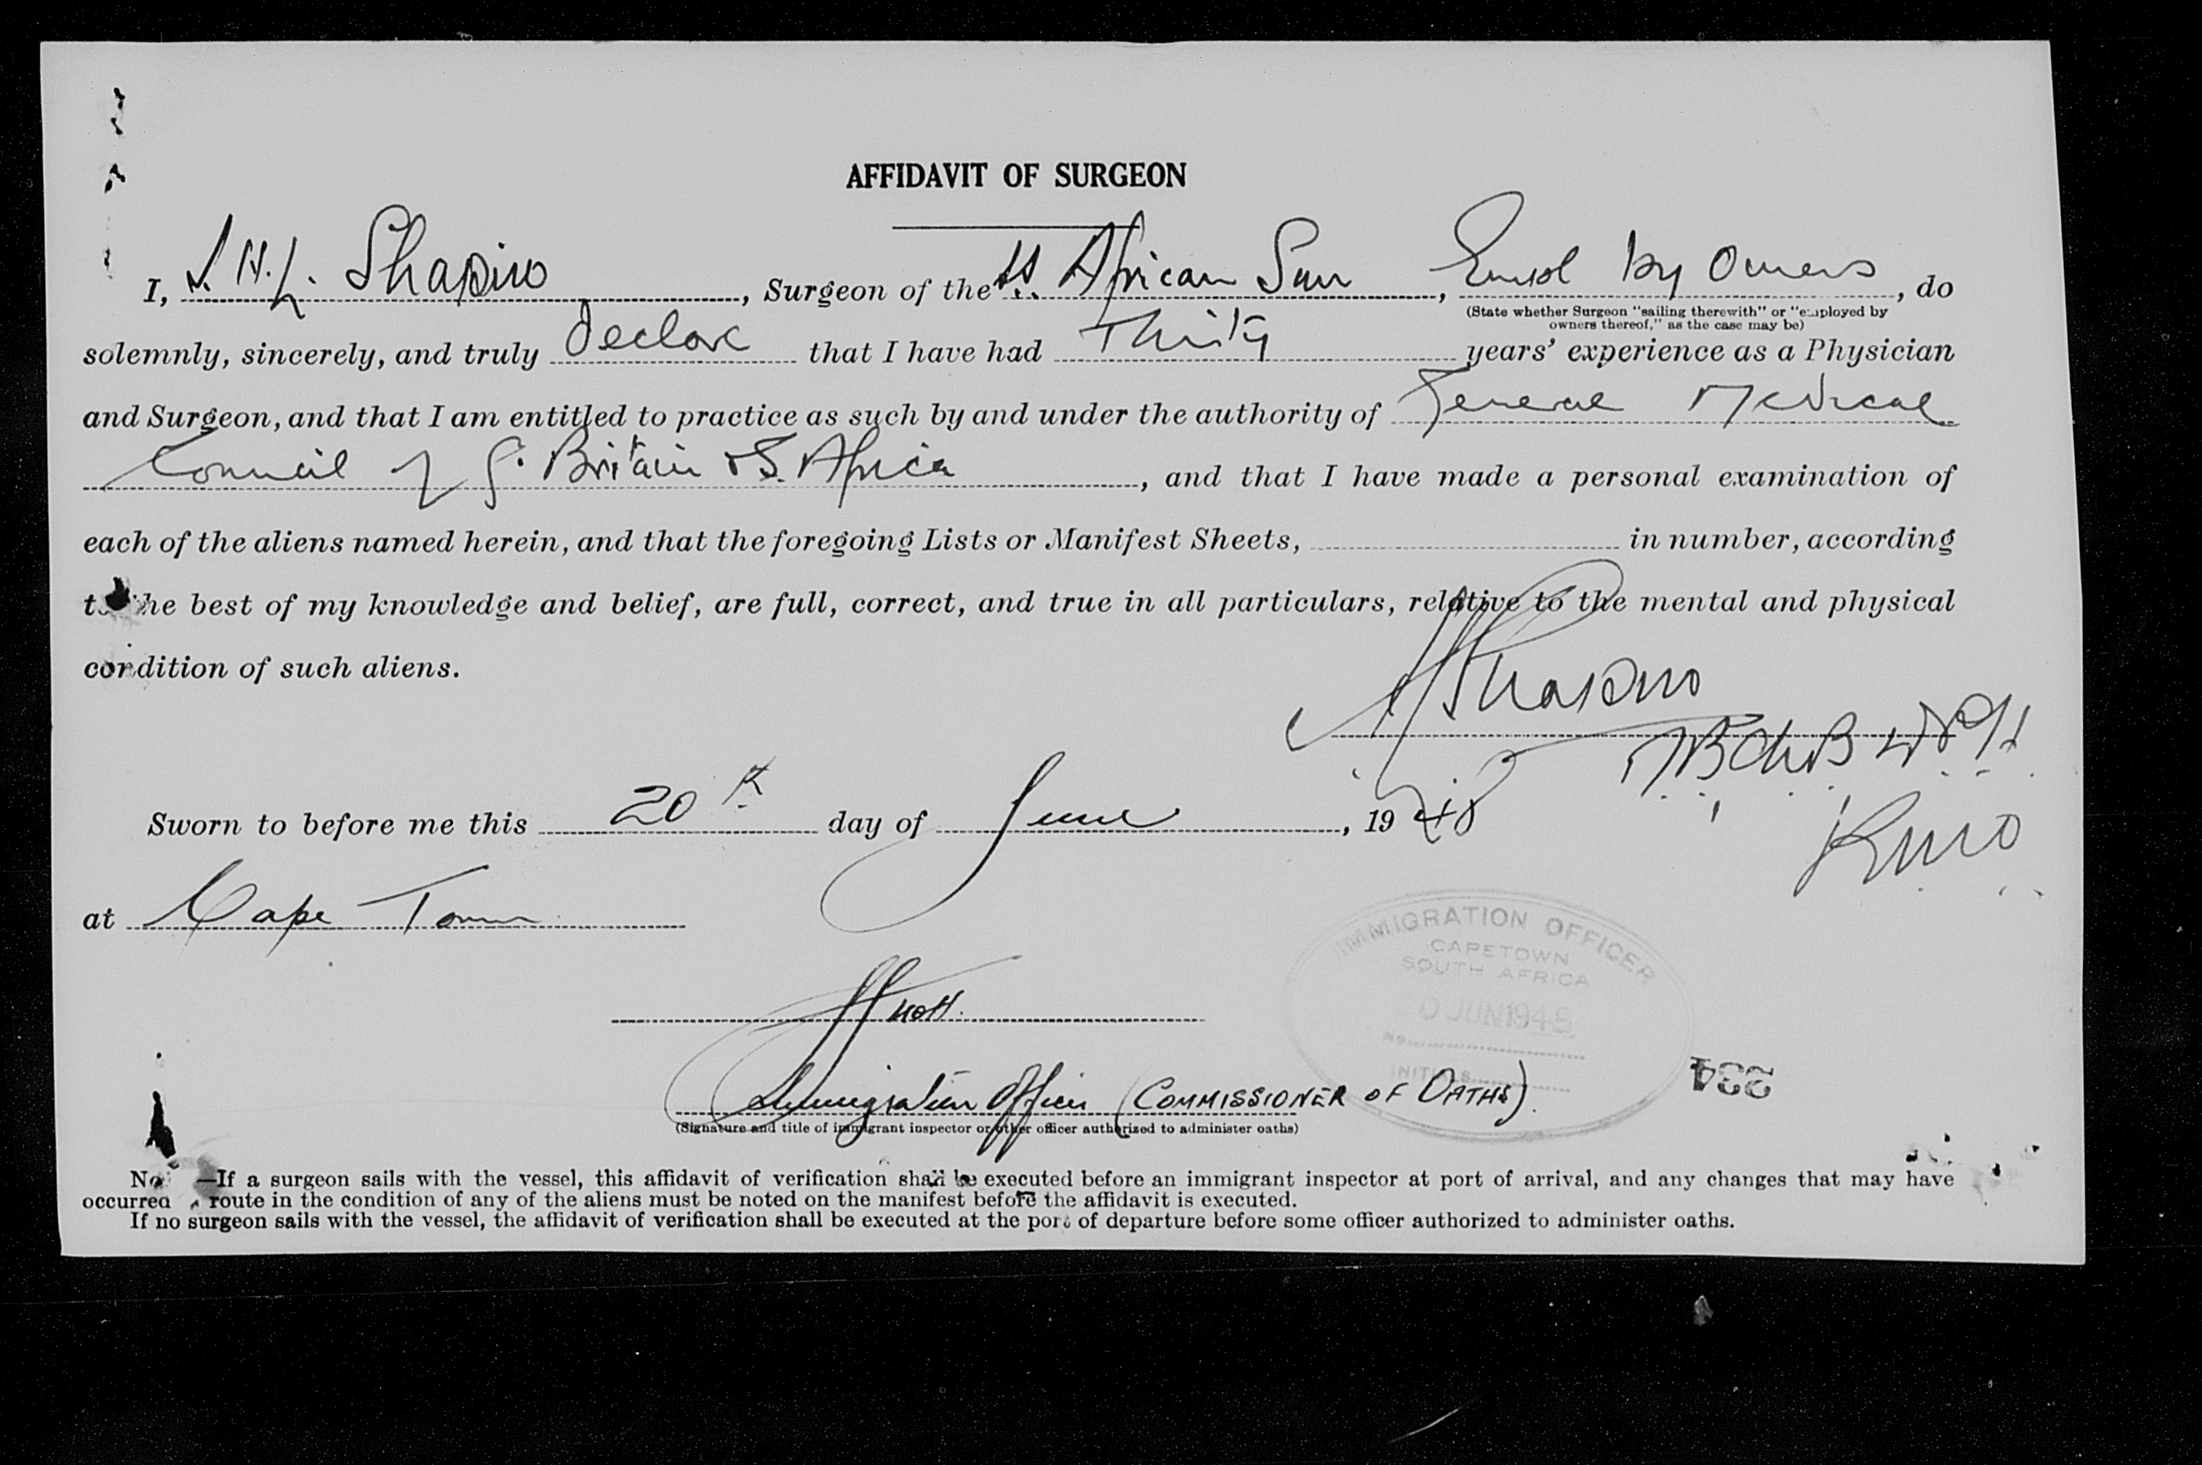 AFFIDAVIT OF SURGEON
I, S. H. L. Shapiro, Surgeon of the SS. African Sun, by Owners, do
(State whether Surgeon "sailing therewith" or "employed by
owners thereof," as the case may be)
solemnly, sincerely, and truly declare that I have had Thirty years' experience as a Physician
and Surgeon, and that I am entitled to practice as such by and under the authority of General Medical
Council of G. Britain & S. Africa, and that I have made a personal examination of
each of the aliens named herein, and that the foregoing Lists or Manifest Sheets, in number, according
to the best of my knowledge and belief, are full, correct, and true in all particulars, relative to the mental and physical
condition of such aliens.
Shapiro
MB ChB
Sworn to before me this 20th day of June, 19
at Cape Town
IMMIGRATION OFFICER
CAPETOWN
SOUTH AFRICA
0 JUN 194
NO.
INITIALS
Immigration Officer (COMMISSIONER OF OATHS).
(Signature and title of immigrant inspector or other officer authorized to administer oaths)
—If a surgeon sails with the vessel, this affidavit of verification shall be executed before an immigrant inspector at port of arrival, and any changes that may have
occurred route in the condition of any of the aliens must be noted on the manifest before the affidavit is executed.
If no surgeon sails with the vessel, the affidavit of verification shall be executed at the port of departure before some officer authorized to administer oaths.